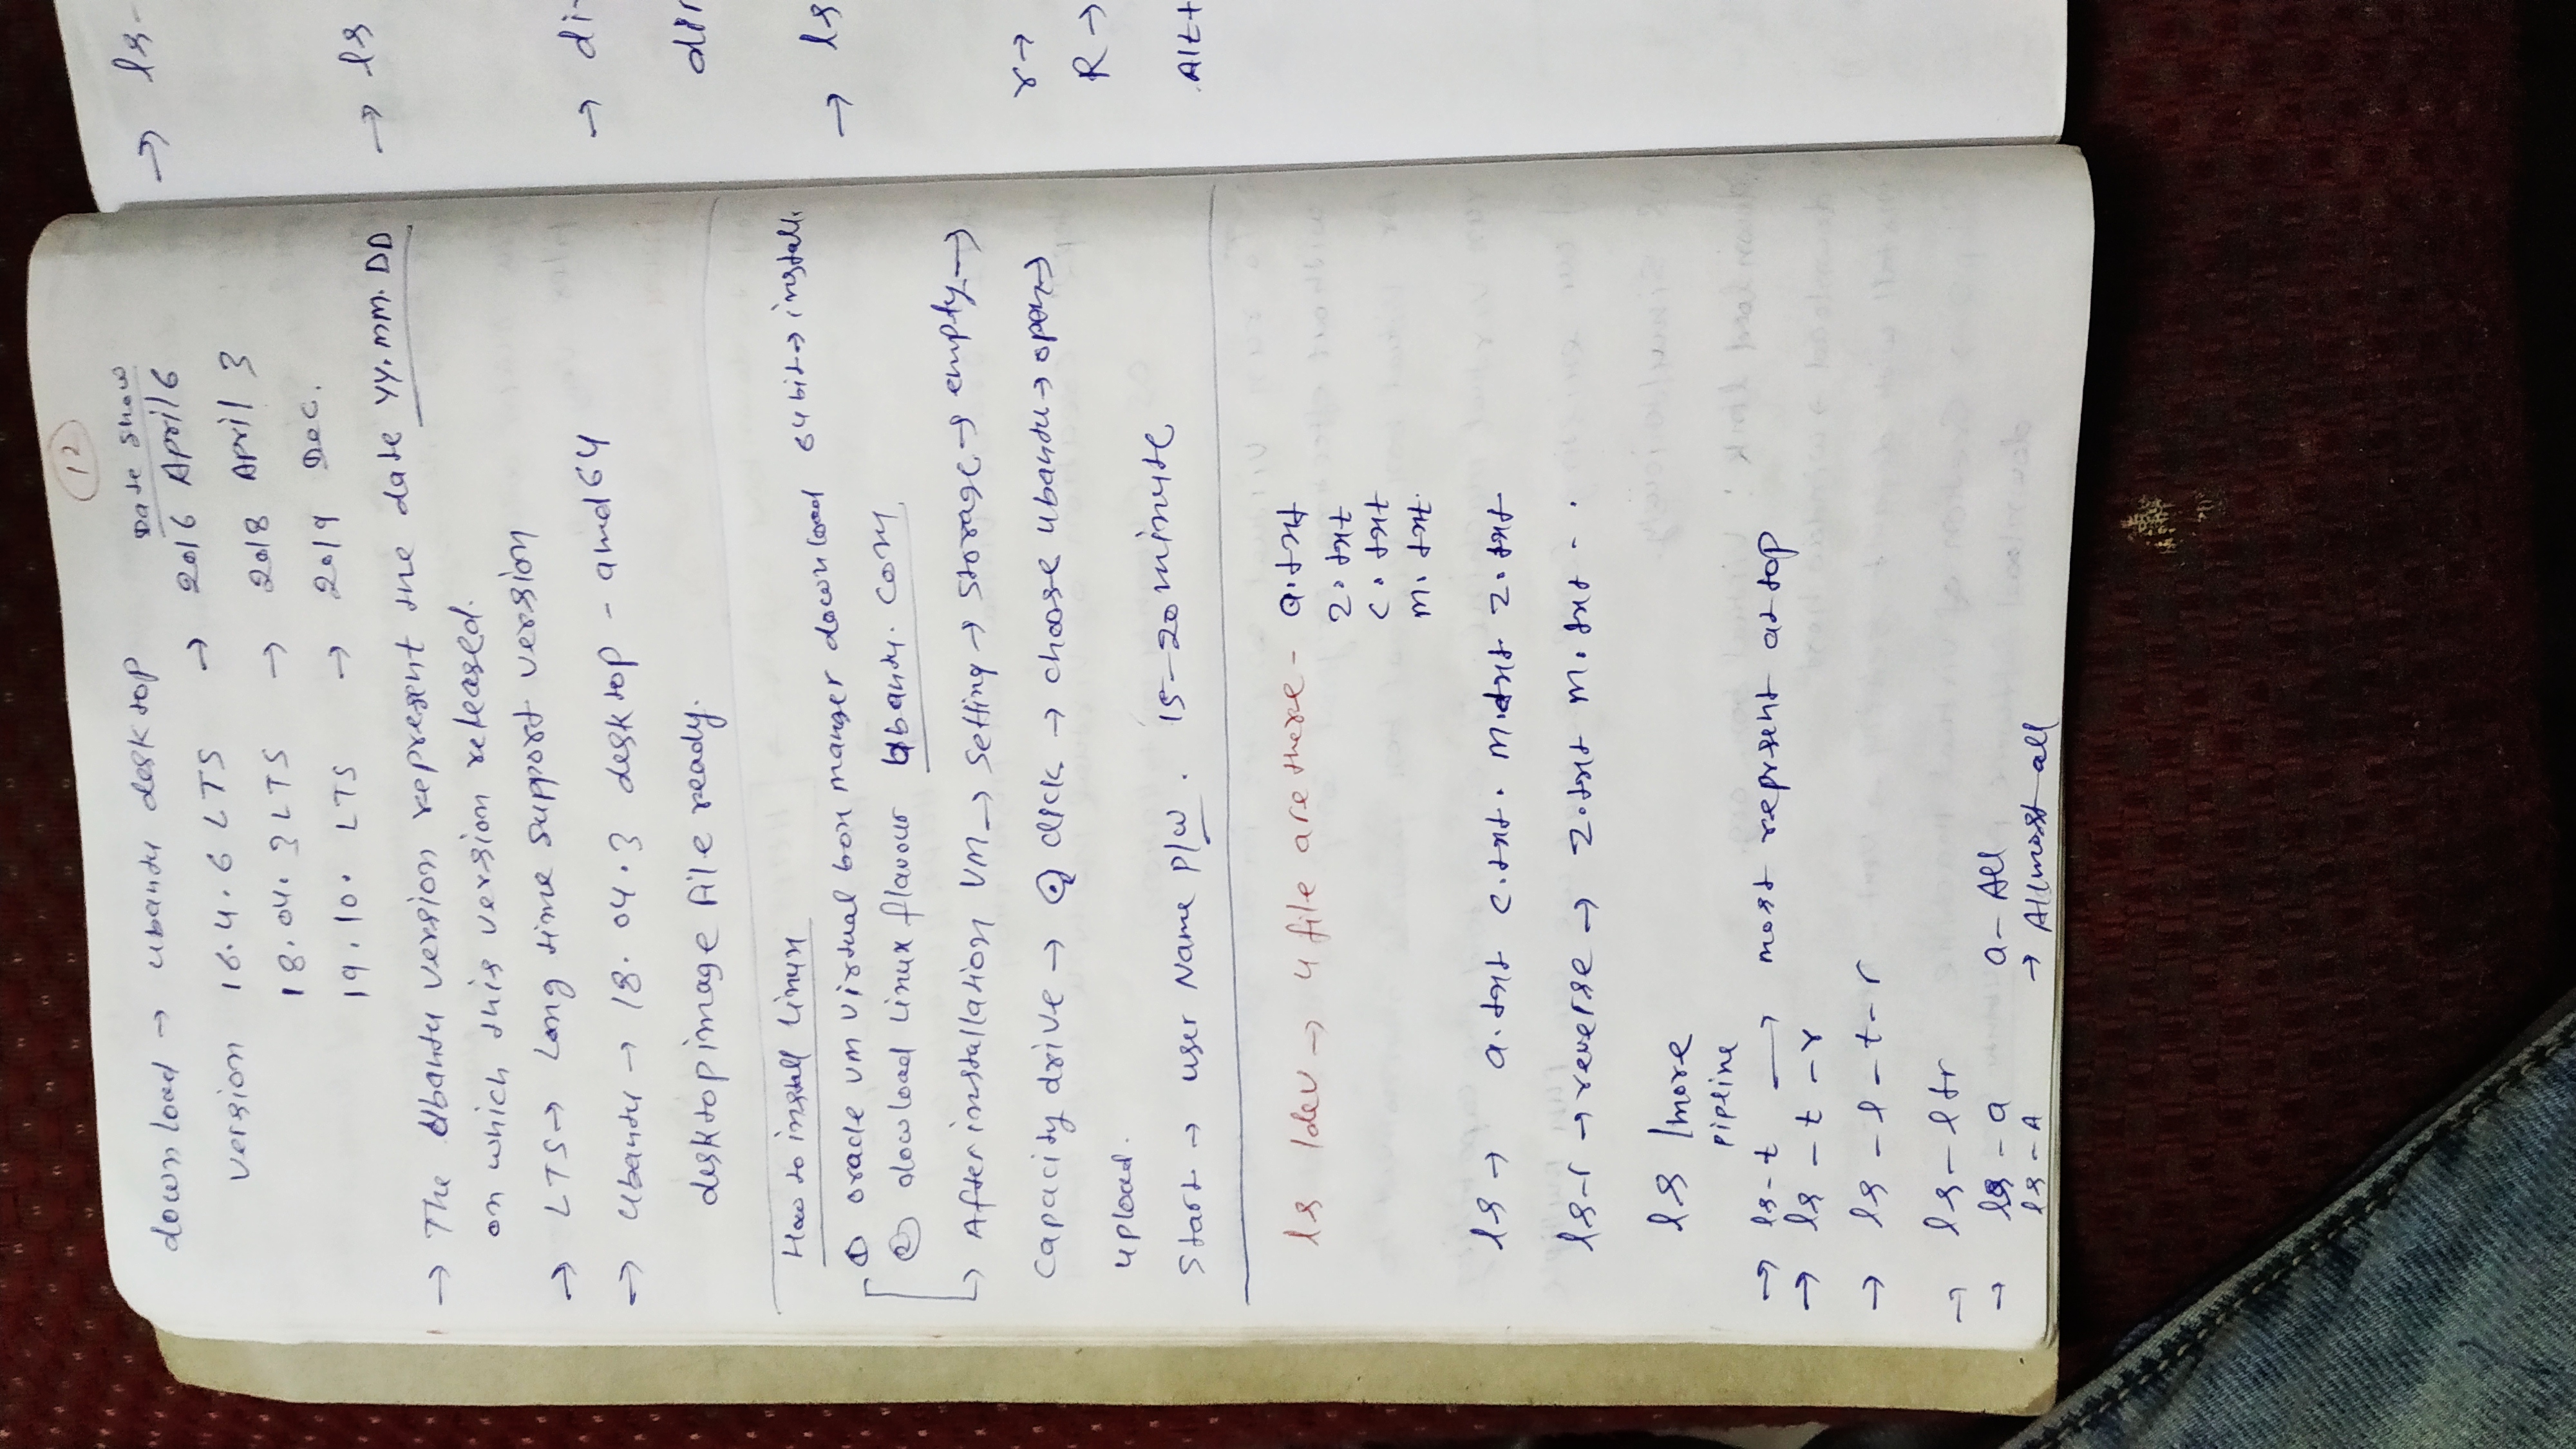 12
download → ubantu desktop
Date show
version 16.4.6 LTS → 2016 April 6
18.04.3 LTS → 2018 April 3
19.10. LTS → 2019 Dec.
→ The Ubantu version represent the date YY.MM.DD
on which this version released.
→ LTS → Long time support version
→ Ubantu → 18.04.3 desktop - amd64
desktop image file ready.
How to install Linux
① oracle VM Virtual box manger download 64 bit → install.
② dowload Linux flavour Ubantu.com
↳ After installation VM → Setting → Storage → empty →
Capacity drive → click → choose ubantu → open →
upload.
Start → user Name p/w. 15-20 minute
ls /dev → 4 file are there - a.txt
z.txt
c.txt
m.txt.
ls → a.txt c.txt. m.txt z.txt
ls-r → reverse → z.txt m.txt - .
ls |more
pipline
→ ls-t → most reprsent at top
→ ls -t -r
→ ls -l -t -r
→ ls -ltr
→ ls -a a- All
ls -A → Allmost all
→ ls-
→ ls
→ di-
dir
→ ls
r →
R →
Alt+